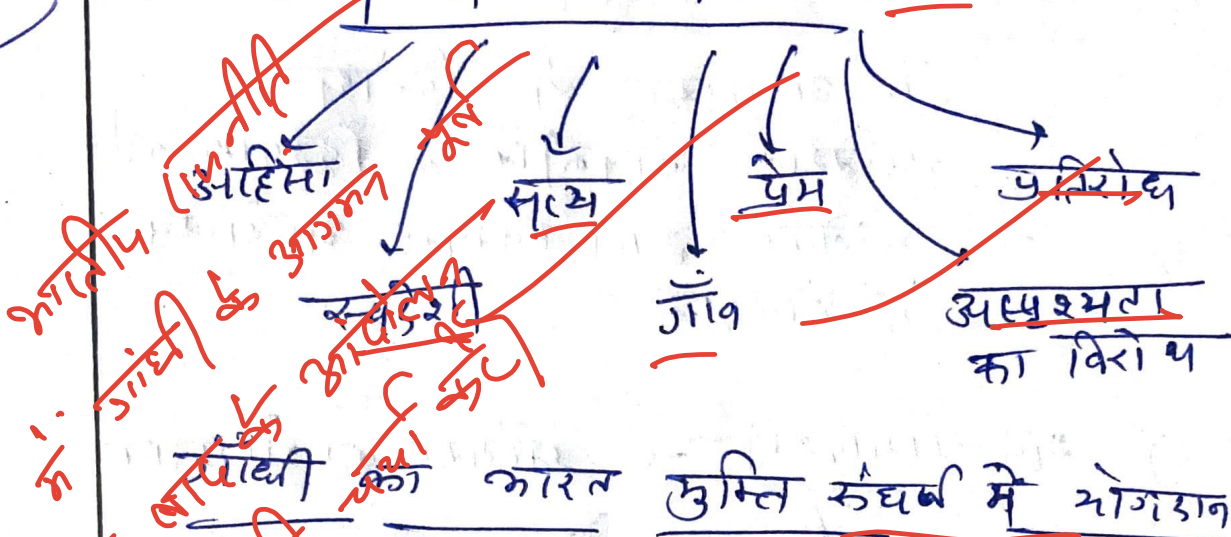 अहिंसा सत्य प्रेम प्रतिरोध
स्वदेशी गाँव अस्पृश्यता
का विरोध
गाँधी का भारत मुक्ति संघर्ष में योगदान
भारतीय राजनीति
में गांधी के आगमन पूर्व
के आंदोलनों
चर्चा करें